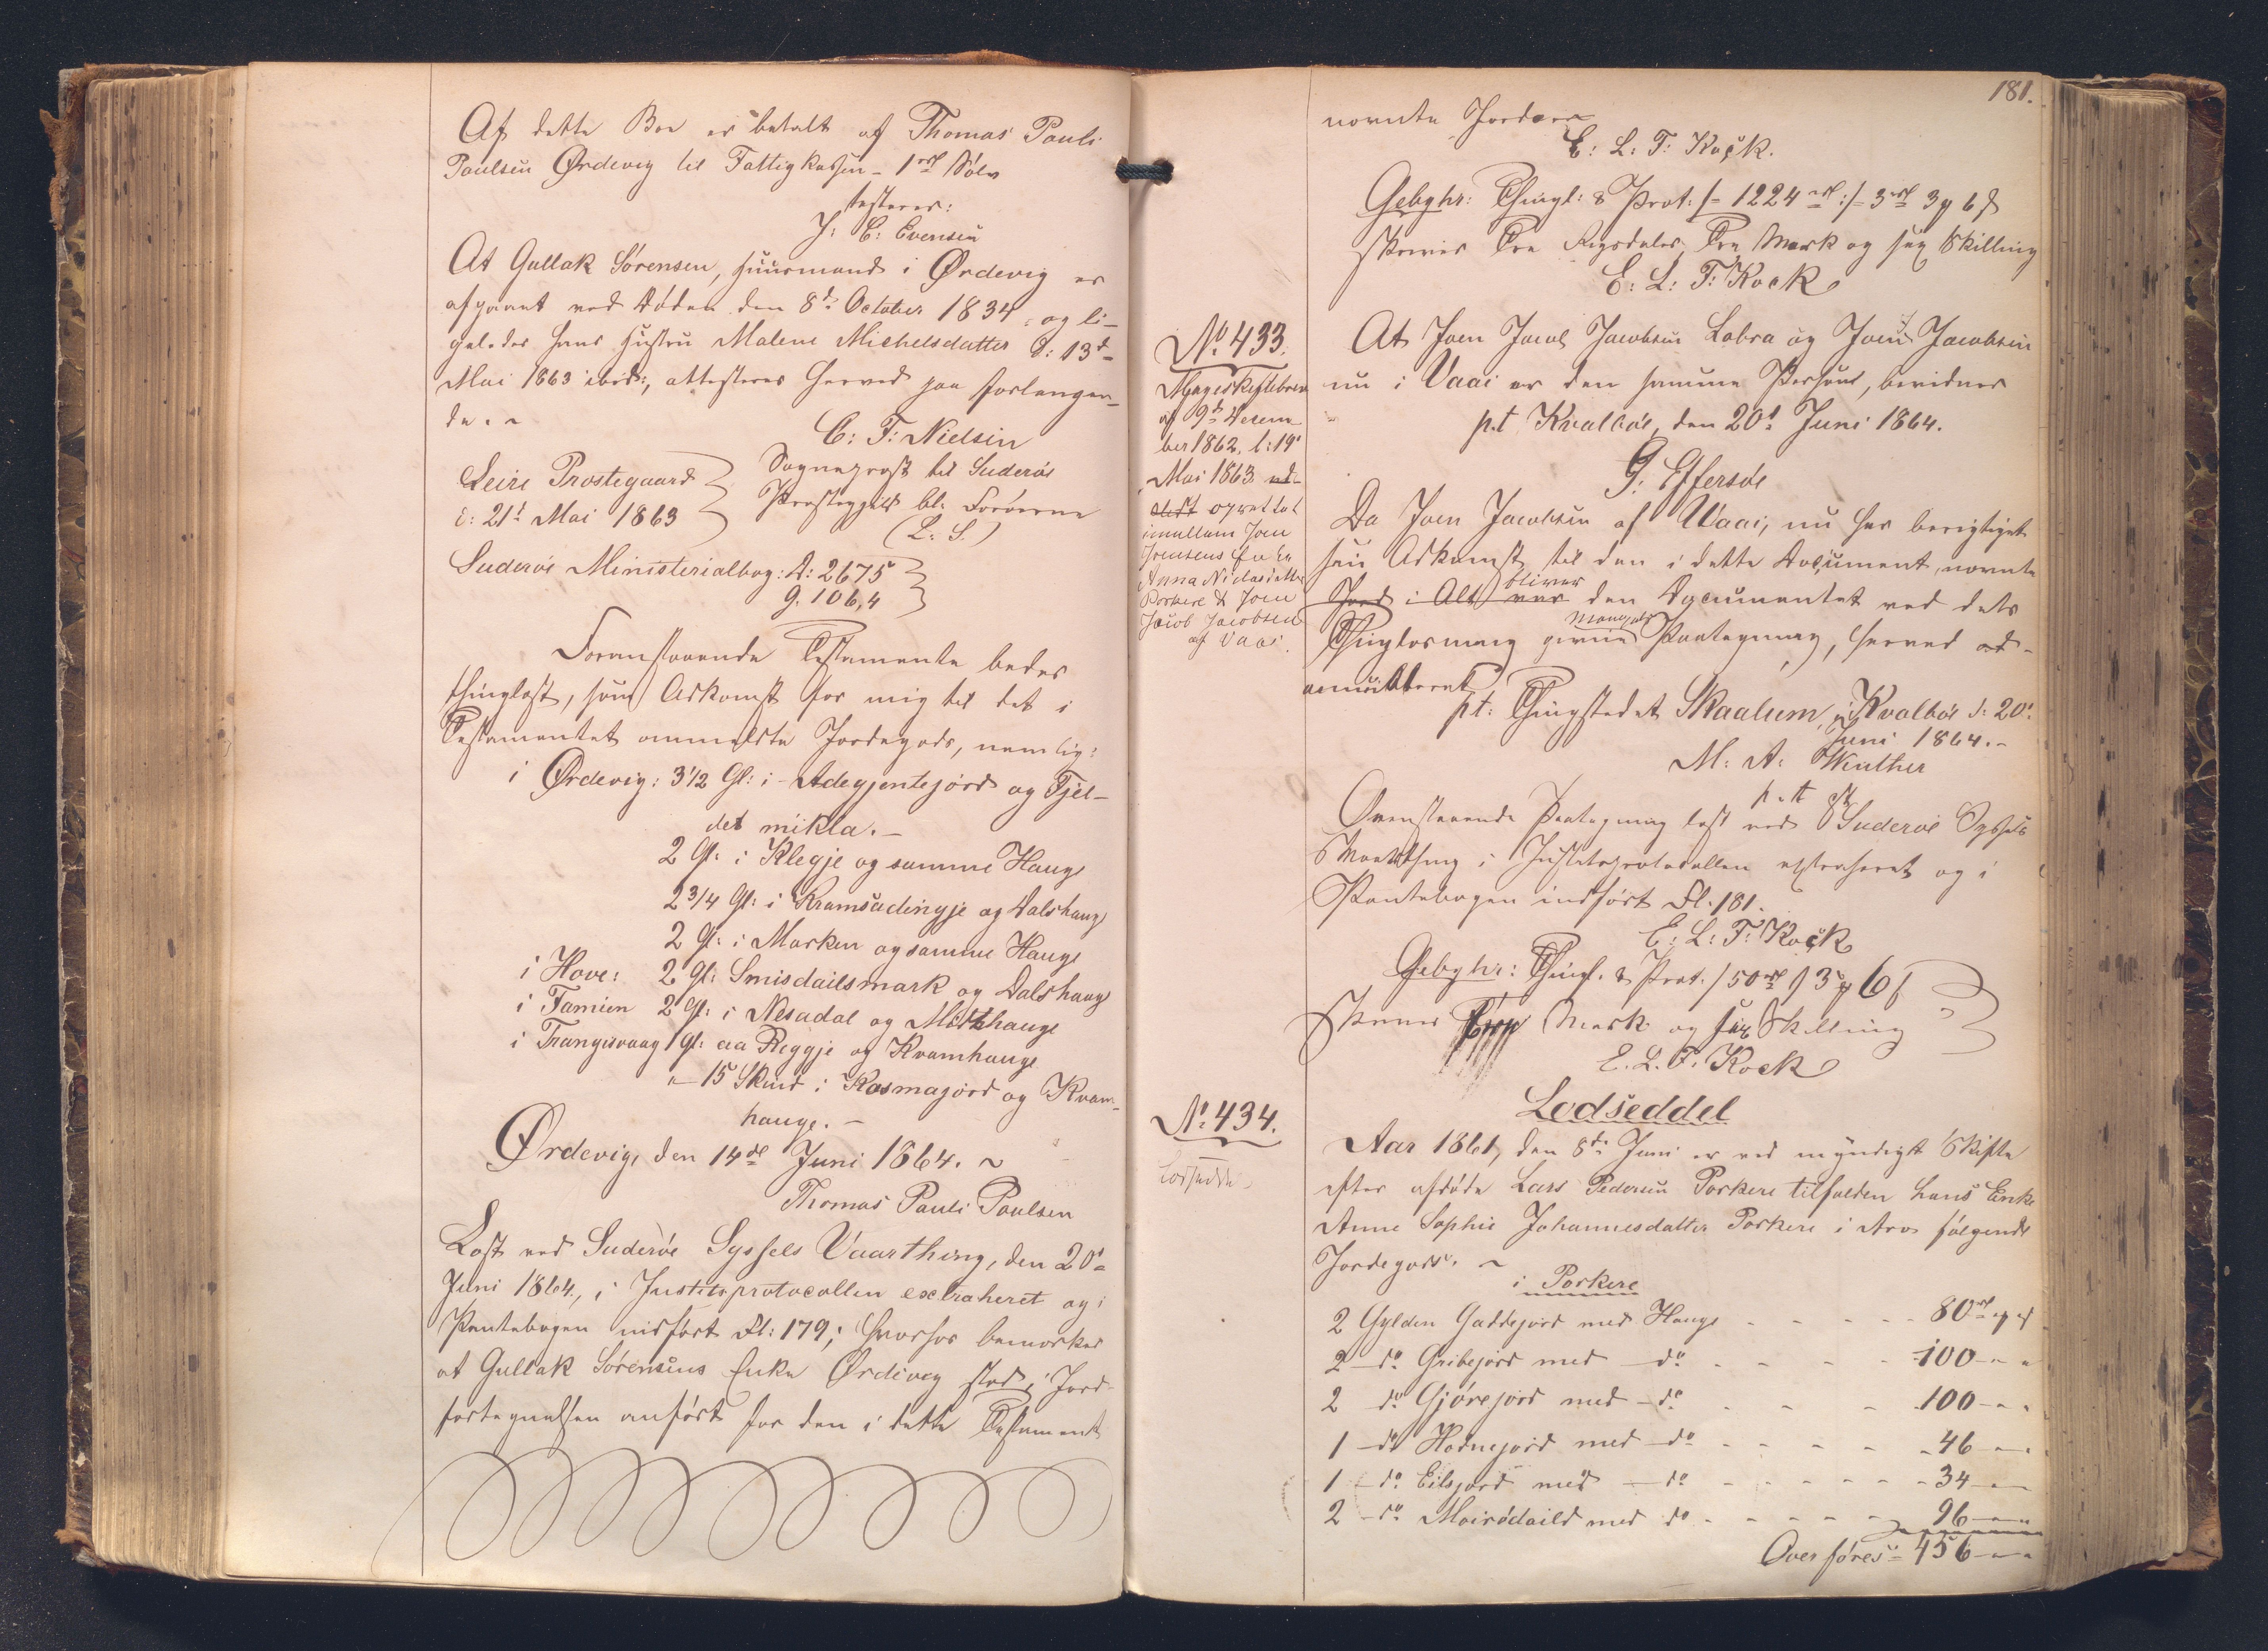 Af dette Boe er betalt af Thomas Pauli
Poulsen Ørdevig til Fattigkassen - 1 rd Sølv
testerer:
J: C: Evensen
At Gullak Sørensen, Huusmand i Ørdevig er
afgaaet ved Døden den 8de October 1834, og li-
geledes hans Hustru Malene Michelsdatter d: 13de
Mai 1863 ibid:, attesteres herved paa Forlangen-
de. ~
C: F: Nielsen
Sogneprest til Suderøe
Præstegjeld bl: Færøerne
(L. S.)
Qeire Prostegaard
d: 21d Mai 1863
Suderøe Ministerialbog: D: 2675
g. 106,4
Foranstaaende Testamente bedes
thinglæst, som Adkomst for mig til det i
Testamentet ommeldte Jordegods, nemlig:
i Ørdevig: 3 1/2 Gl: i Adegjentejord og Fjel-
det mikla. -
2 Gl: i Klegje og samme Hauge
2 3/4 Gl: i Kramsadingje og Dalshauge
2 Gl: i Marken og samme Hauge
i Hove: 2 Gl: Smisdailsmark og Dalshauge
i Famien 2 Gl: i Nesadal og Mitthauge
i Trangisvaag 1 Gl: aa Reggje og Kvamhauge
" - 15 Skind i Kosmajord og Kvam-
hauge. -
Ørdevig, den 14de Juni 1864. ~
Thomas Pauli Poulsen
Læst ved Suderøe Syssels Vaarthing, den 20d
Juni 1864, i Justitsprotocollen extraheret og i
Pantebogen indført Fl: 179; hvorhos bemærkes
at Gullak Sørensens Enke Ørdevig stod i Jord-
fortegnelsen anført for den i dette Testament
181.
nævnte Jorder
E: L: F: Kock.
Gebyhr: Thingl: & Prot: /- 1224 rd :/- 3 rd 3 ℳ 6 ß
skriver Tre Rigsdaler, Tre Mark og sex Skilling
E: L: F: Kock
No 433.
Mageskiftebrev
af 9d Decem-
ber 1862, l: 19d
Mai 1863 ud-
stedt oprettet
imellem Joen
Joensens Enke
Anna Niclasdatter
Porkere & Joen
Jacob Jacobsen
af Vaai.
At Joen Jacob Jacobsen Lobra og Joen J Jacobsen
nu i Vaai er den samme Person, bevidner
p.t Kvalbøe, den 20d Juni 1864.
G. Effersøe
Da Joen Jacobsen af Waai, nu har berigtiget
sin Adkomst til den i dette Document nævnte
Jord i Alt var bliver den Documentet ved dets
Thinglæsning givne Mangels Paategning, herved ad-
annulleret
pt: Thingstedet Skaalum, i Kvalbøe d: 20d
Juni 1864. -
M: A: Winther
p. t
Ovenstaaende Paategning læst ved Suderøe Syssels
Vaarthing i Justitsprotocollen extraheret og i
Pantebogen indført Fl. 181.
E: L: F: Kock
Gebyhr: Thingl. & Prot. / 50 rd / 3 ℳ 6 ß
skriver Tre Mark og sex Skilling
E. L. F. Kock
No 434.
Lodseddel
Lodseddel
Aar 1861, den 8de Juni er ved myndigt Skifte
efter afdøde Lars Pedersen Porkere tilfalden hans Enke
Anne Sophie Johannesdatter Porkere i Arv følgende
Jordegods. ~
i Porkere
2 Gylden Gaddejord med Hauge - - - - - 80 rd " ℳ " ß
2 - do Gribejord med - do - - - - 100 - " "
2 do Gjórejord med - do - - - 100 - " "
1 - do Hornejord med - do - - - - - 46 - "
1 - do Eilsjord med - do - - - - - - 34 - "
2 - do Moirødaild med do - - - - - 96 - "
Overføres - 456 - "